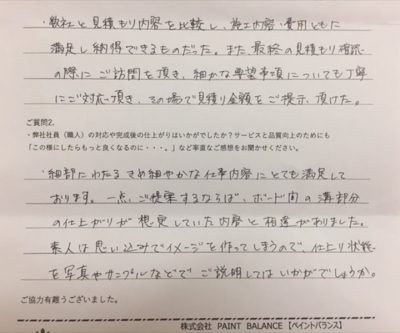 ・数社と見積もり内容を比較し、施工内容・費用ともに
満足し納得できるものだった。また、最終の見積もり確認
の際にご訪問を頂き、細かな要望事項についても丁寧
にご対応頂き、その場で見積り金額をご提示頂けた。
ご質問2.
・弊社社員（職人）の対応や完成後の仕上がりはいかがでしたか？サービスと品質向上のためにも
「この様にしたらもっと良くなるのに・・・。」など率直なご感想をお聞かせください。
・細部にわたるきめ細やかな仕事内容にとても満足して
おります。一点、ご提案するならば、ボード間の溝部分
の仕上がりが想定していた内容と相違がありました。
素人は思い込みでイメージを作ってしまうので、仕上り状態
を写真やサンプルなどでご説明してはいかがでしょうか。
ご協力有難うございました。
株式会社 PAINT BALANCE【ペイントバランス】